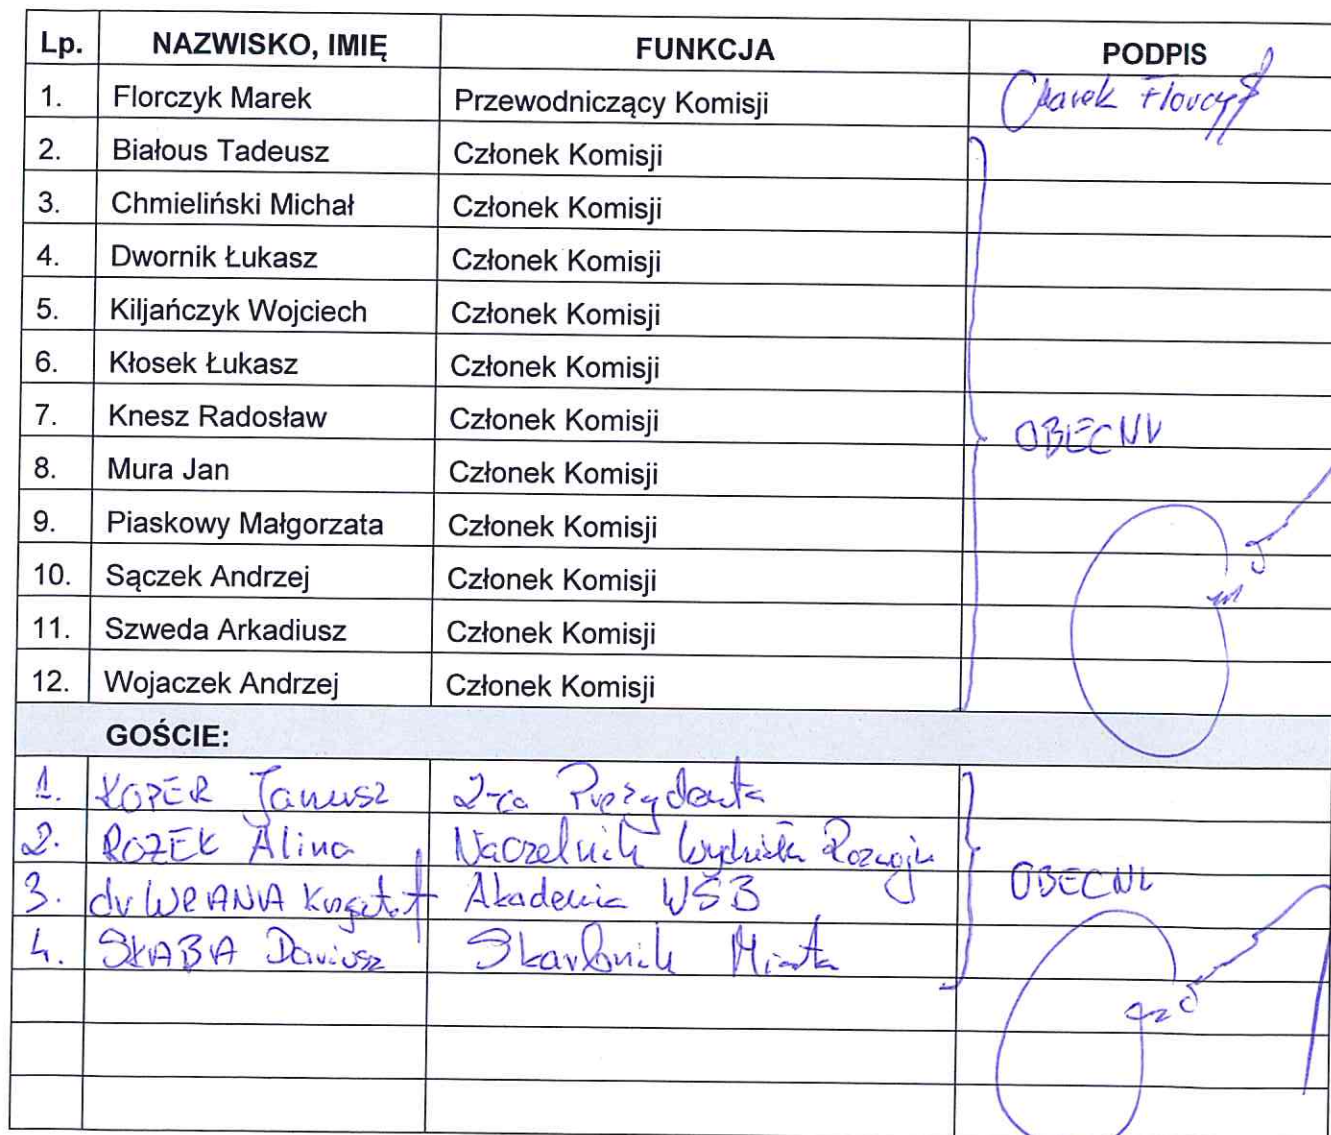 Lp. NAZWISKO, IMIĘ FUNKCJA PODPIS
1. Florczyk Marek Przewodniczący Komisji Marek Florczyk
2. Białous Tadeusz Członek Komisji
3. Chmieliński Michał Członek Komisji
4. Dwornik Łukasz Członek Komisji
5. Kiljańczyk Wojciech Członek Komisji
6. Kłosek Łukasz Członek Komisji
7. Knesz Radosław Członek Komisji OBECNI
8. Mura Jan Członek Komisji
9. Piaskowy Małgorzata Członek Komisji
10. Sączek Andrzej Członek Komisji
11. Szweda Arkadiusz Członek Komisji
12. Wojaczek Andrzej Członek Komisji
GOŚCIE:
1. KOPER Janusz Z-ca Prezydenta
2. ROŻEK Alina Naczelnik Wydziału Rozwoju
3. dr WRANA Krzysztof Akademia WSB OBECNI
4. SKABA Dariusz Skarbnik Miasta